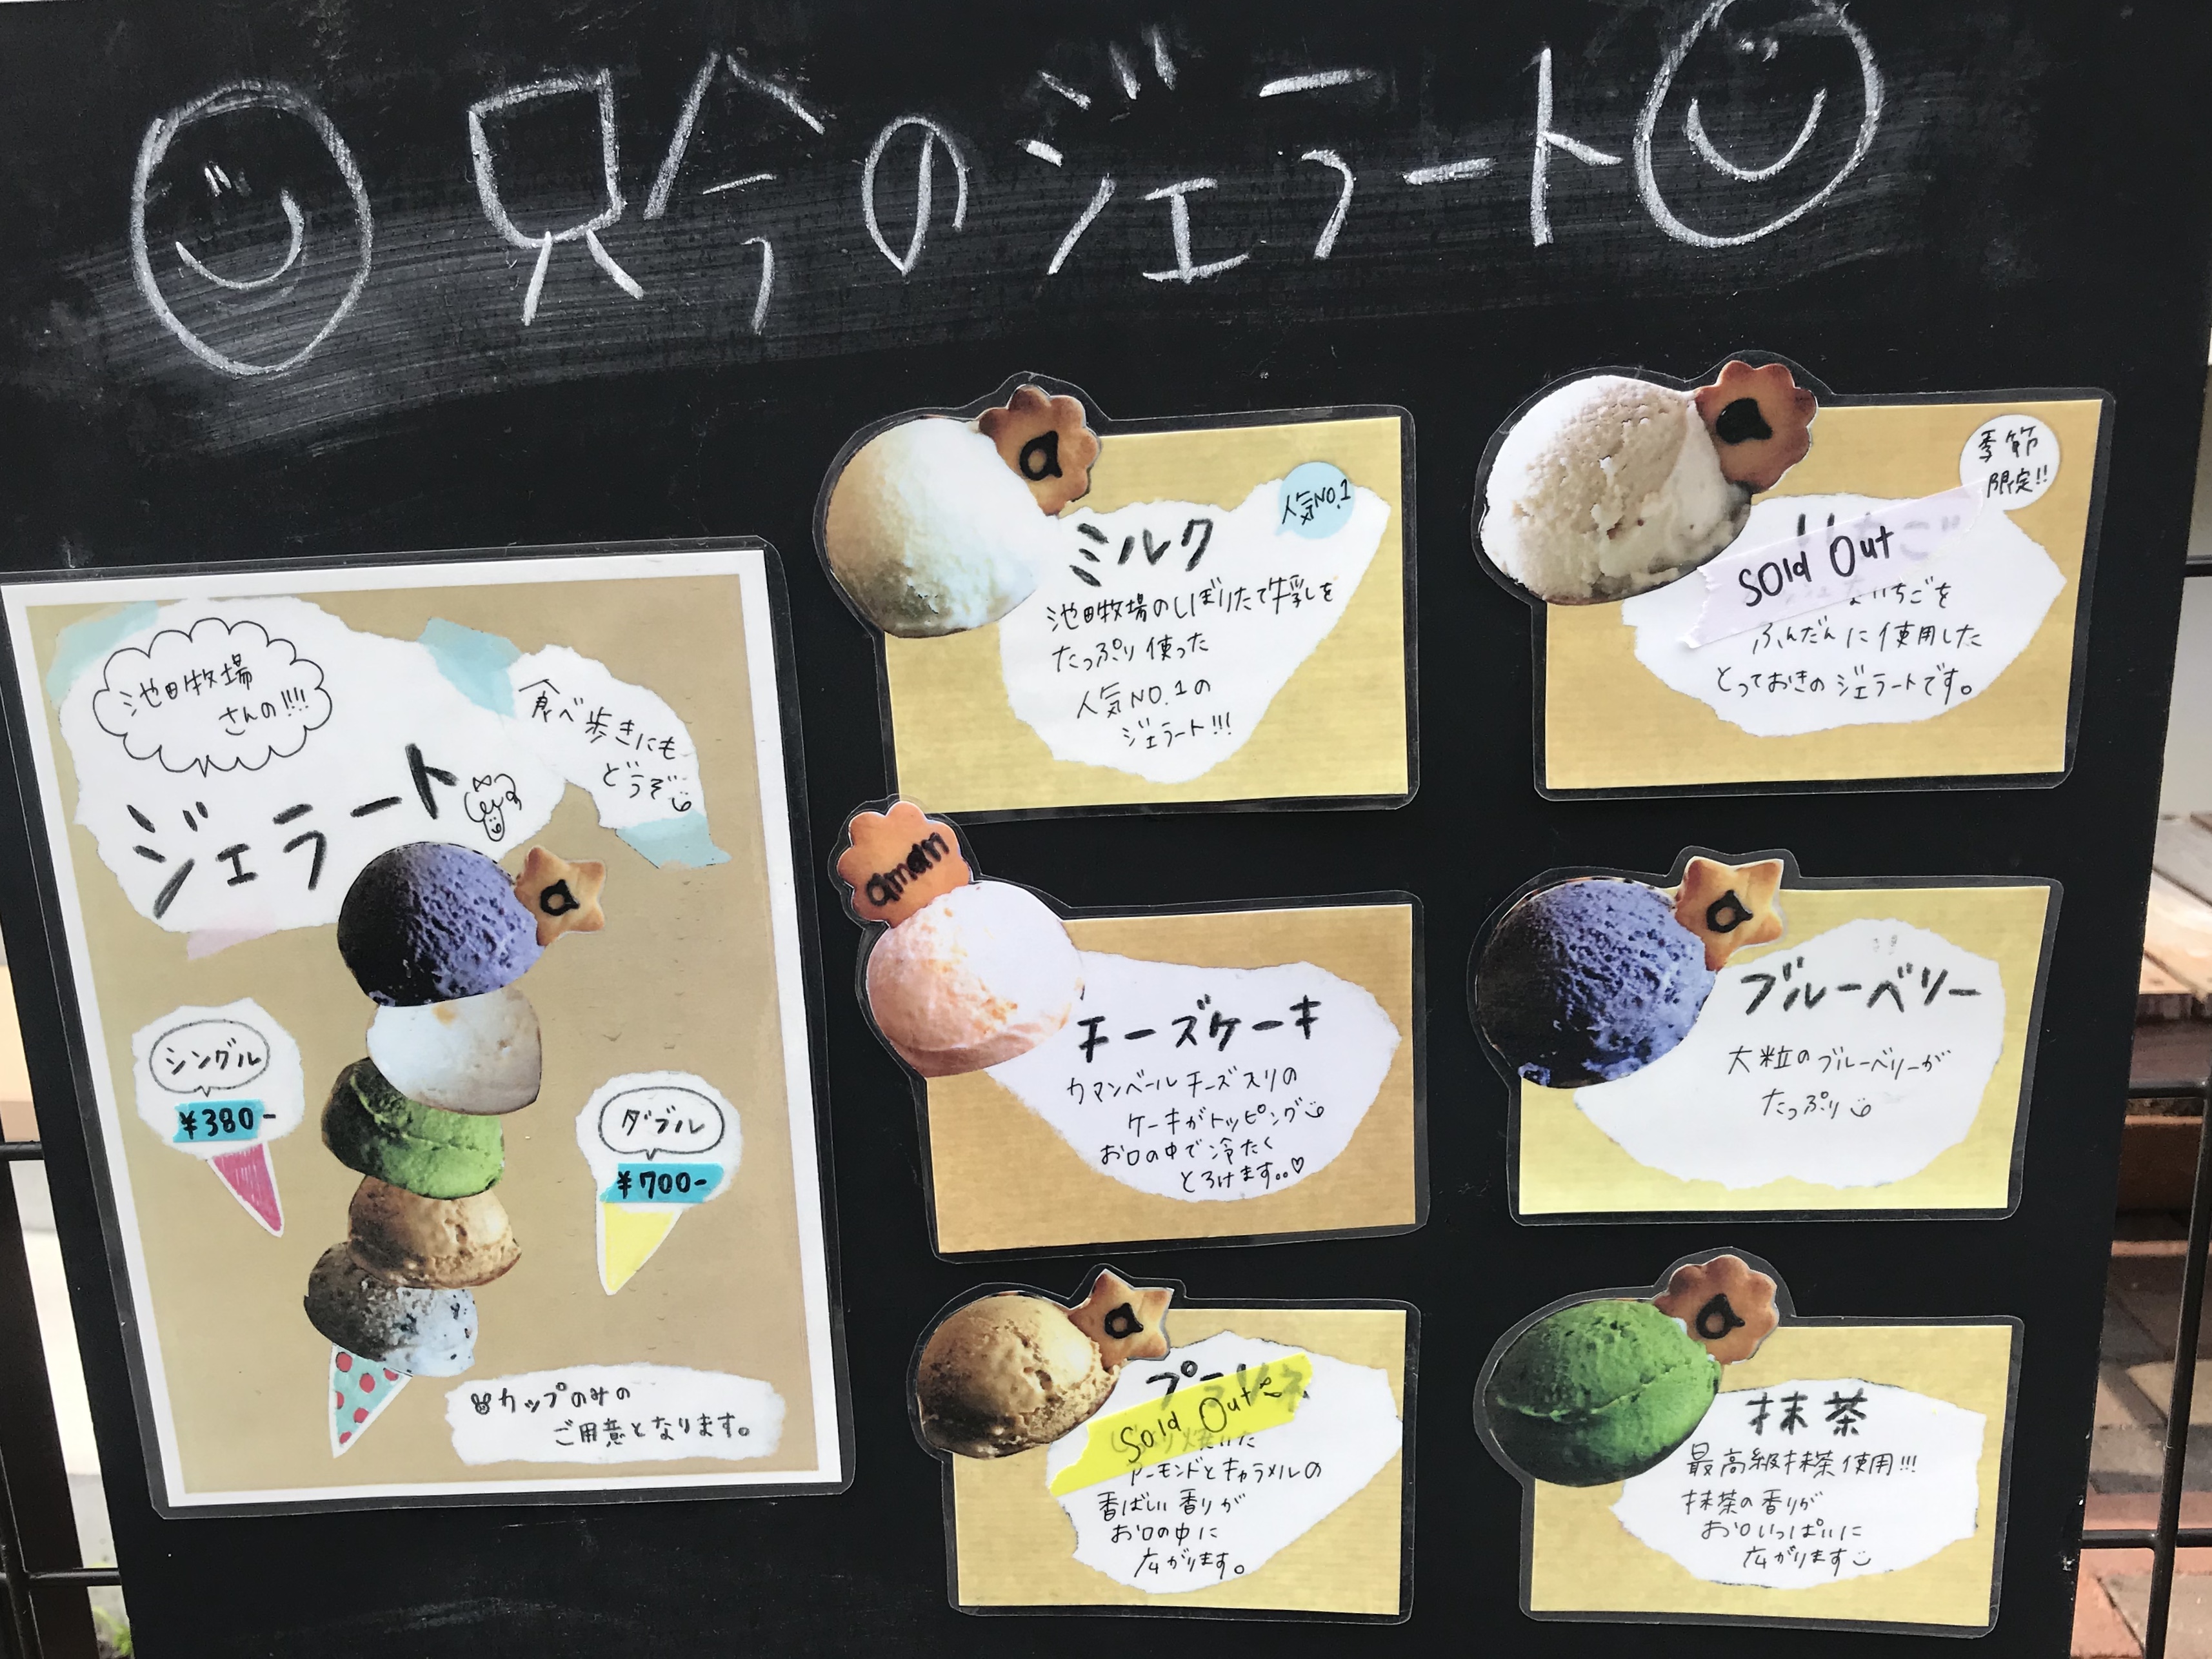 只今のジェラート
池田牧場
さんの!!!
食べ歩きにも
どうぞ
ジェラート
シングル
¥380-
ダブル
¥700-
カップのみの
ご用意となります。
ミルク
人気NO.1
池田牧場のしぼりたて牛乳を
たっぷり使った
人気NO.1の
ジェラート!!!
季節
限定!!
いちご
Sold Out
いちごを
ふんだんに使用した
とっておきのジェラートです。
aman
チーズケーキ
カマンベールチーズ入りの
ケーキがトッピング
お口の中で冷たく
とろけます。。♡
ブルーベリー
大粒のブルーベリーが
たっぷり
プラリネ
Sold Out
焼いた
アーモンドとキャラメルの
香ばしい香りが
お口の中に
広がります。
抹茶
最高級抹茶使用!!!
抹茶の香りが
お口いっぱいに
広がります